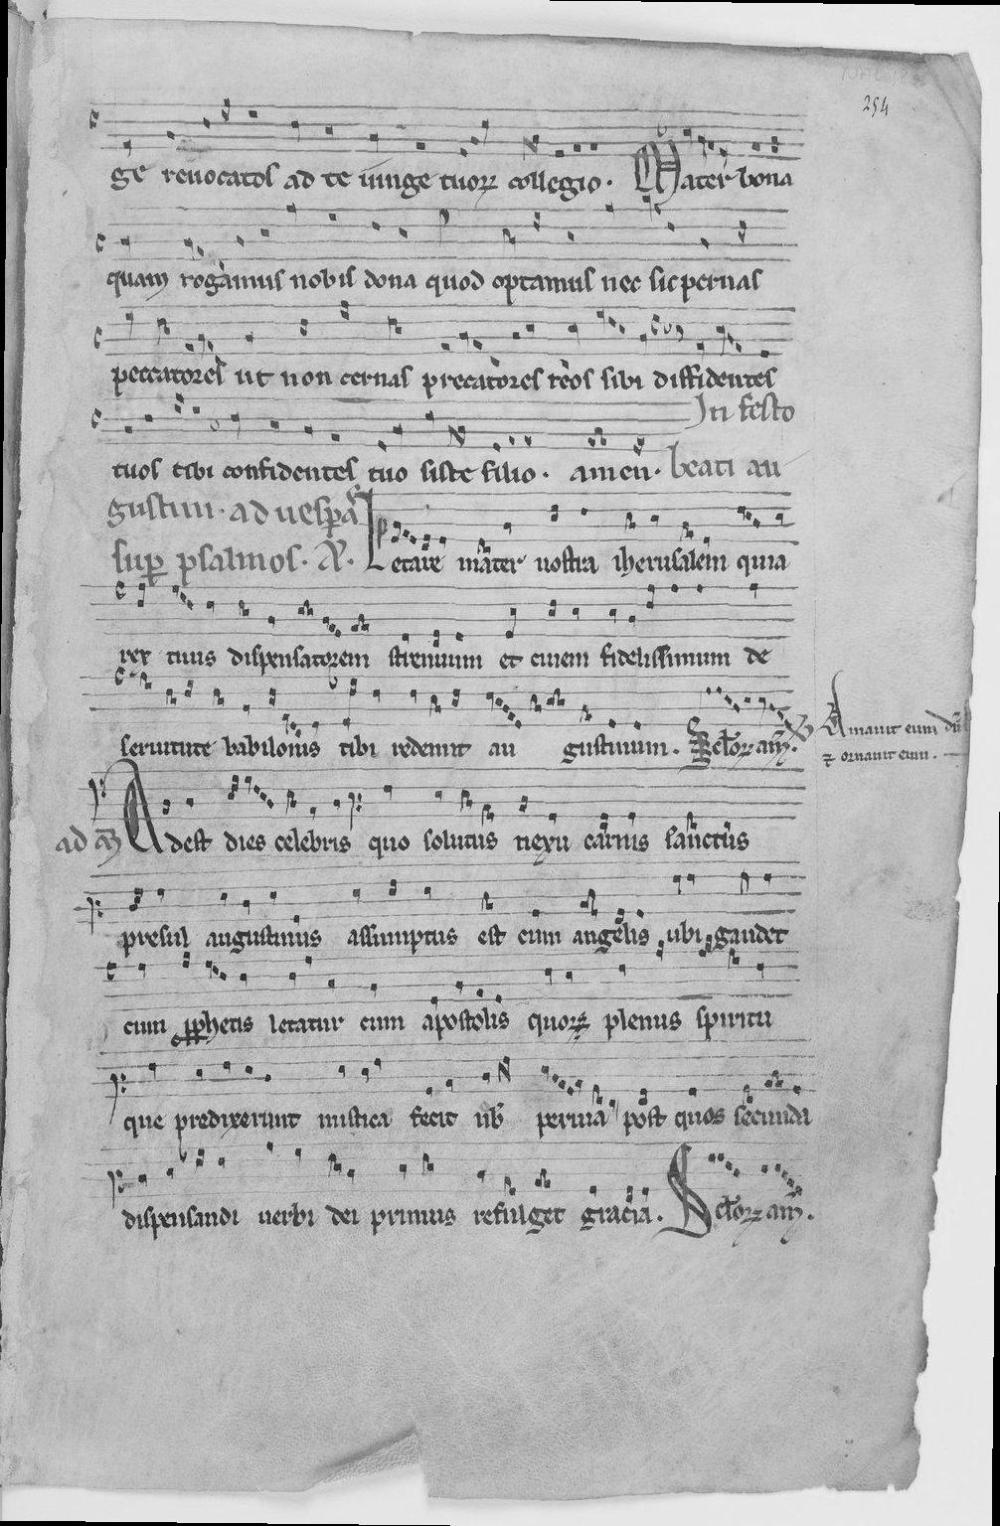 254
ge reuocatos ad te iunge tuoꝝ collegio. Mater bona
quam rogamus nobis dona quod optamus nec sic spernas
peccatores ut non cernas precatores reos sibi diffidentes
In festo
tuos tibi confidentes tuo siste filio. amen. beati au
gustini. ad uesꝑas
suꝑ psalmos. A. Letare mater nostra iherusalem quia
rex tuus dispensatorem strenuum et ciuem fidelissimum de
seruitute babilonis tibi redemit au gustinum. Sclōꝝ am̄.
Amauit eum dn̄s
⁊ ornauit eum.
ad Adest dies celebris quo solutus nexu carnis sanctus
presul augustinus assumptus est cum angelis ubi gaudet
cum ꝓphetis letatur cum apostolis quoꝝ plenus spiritu
que predixerunt mistica fecit nb̄ peruia post quos secunda
dispensandi uerbi dei primus refulget gracia. Sclōꝝ am̄.